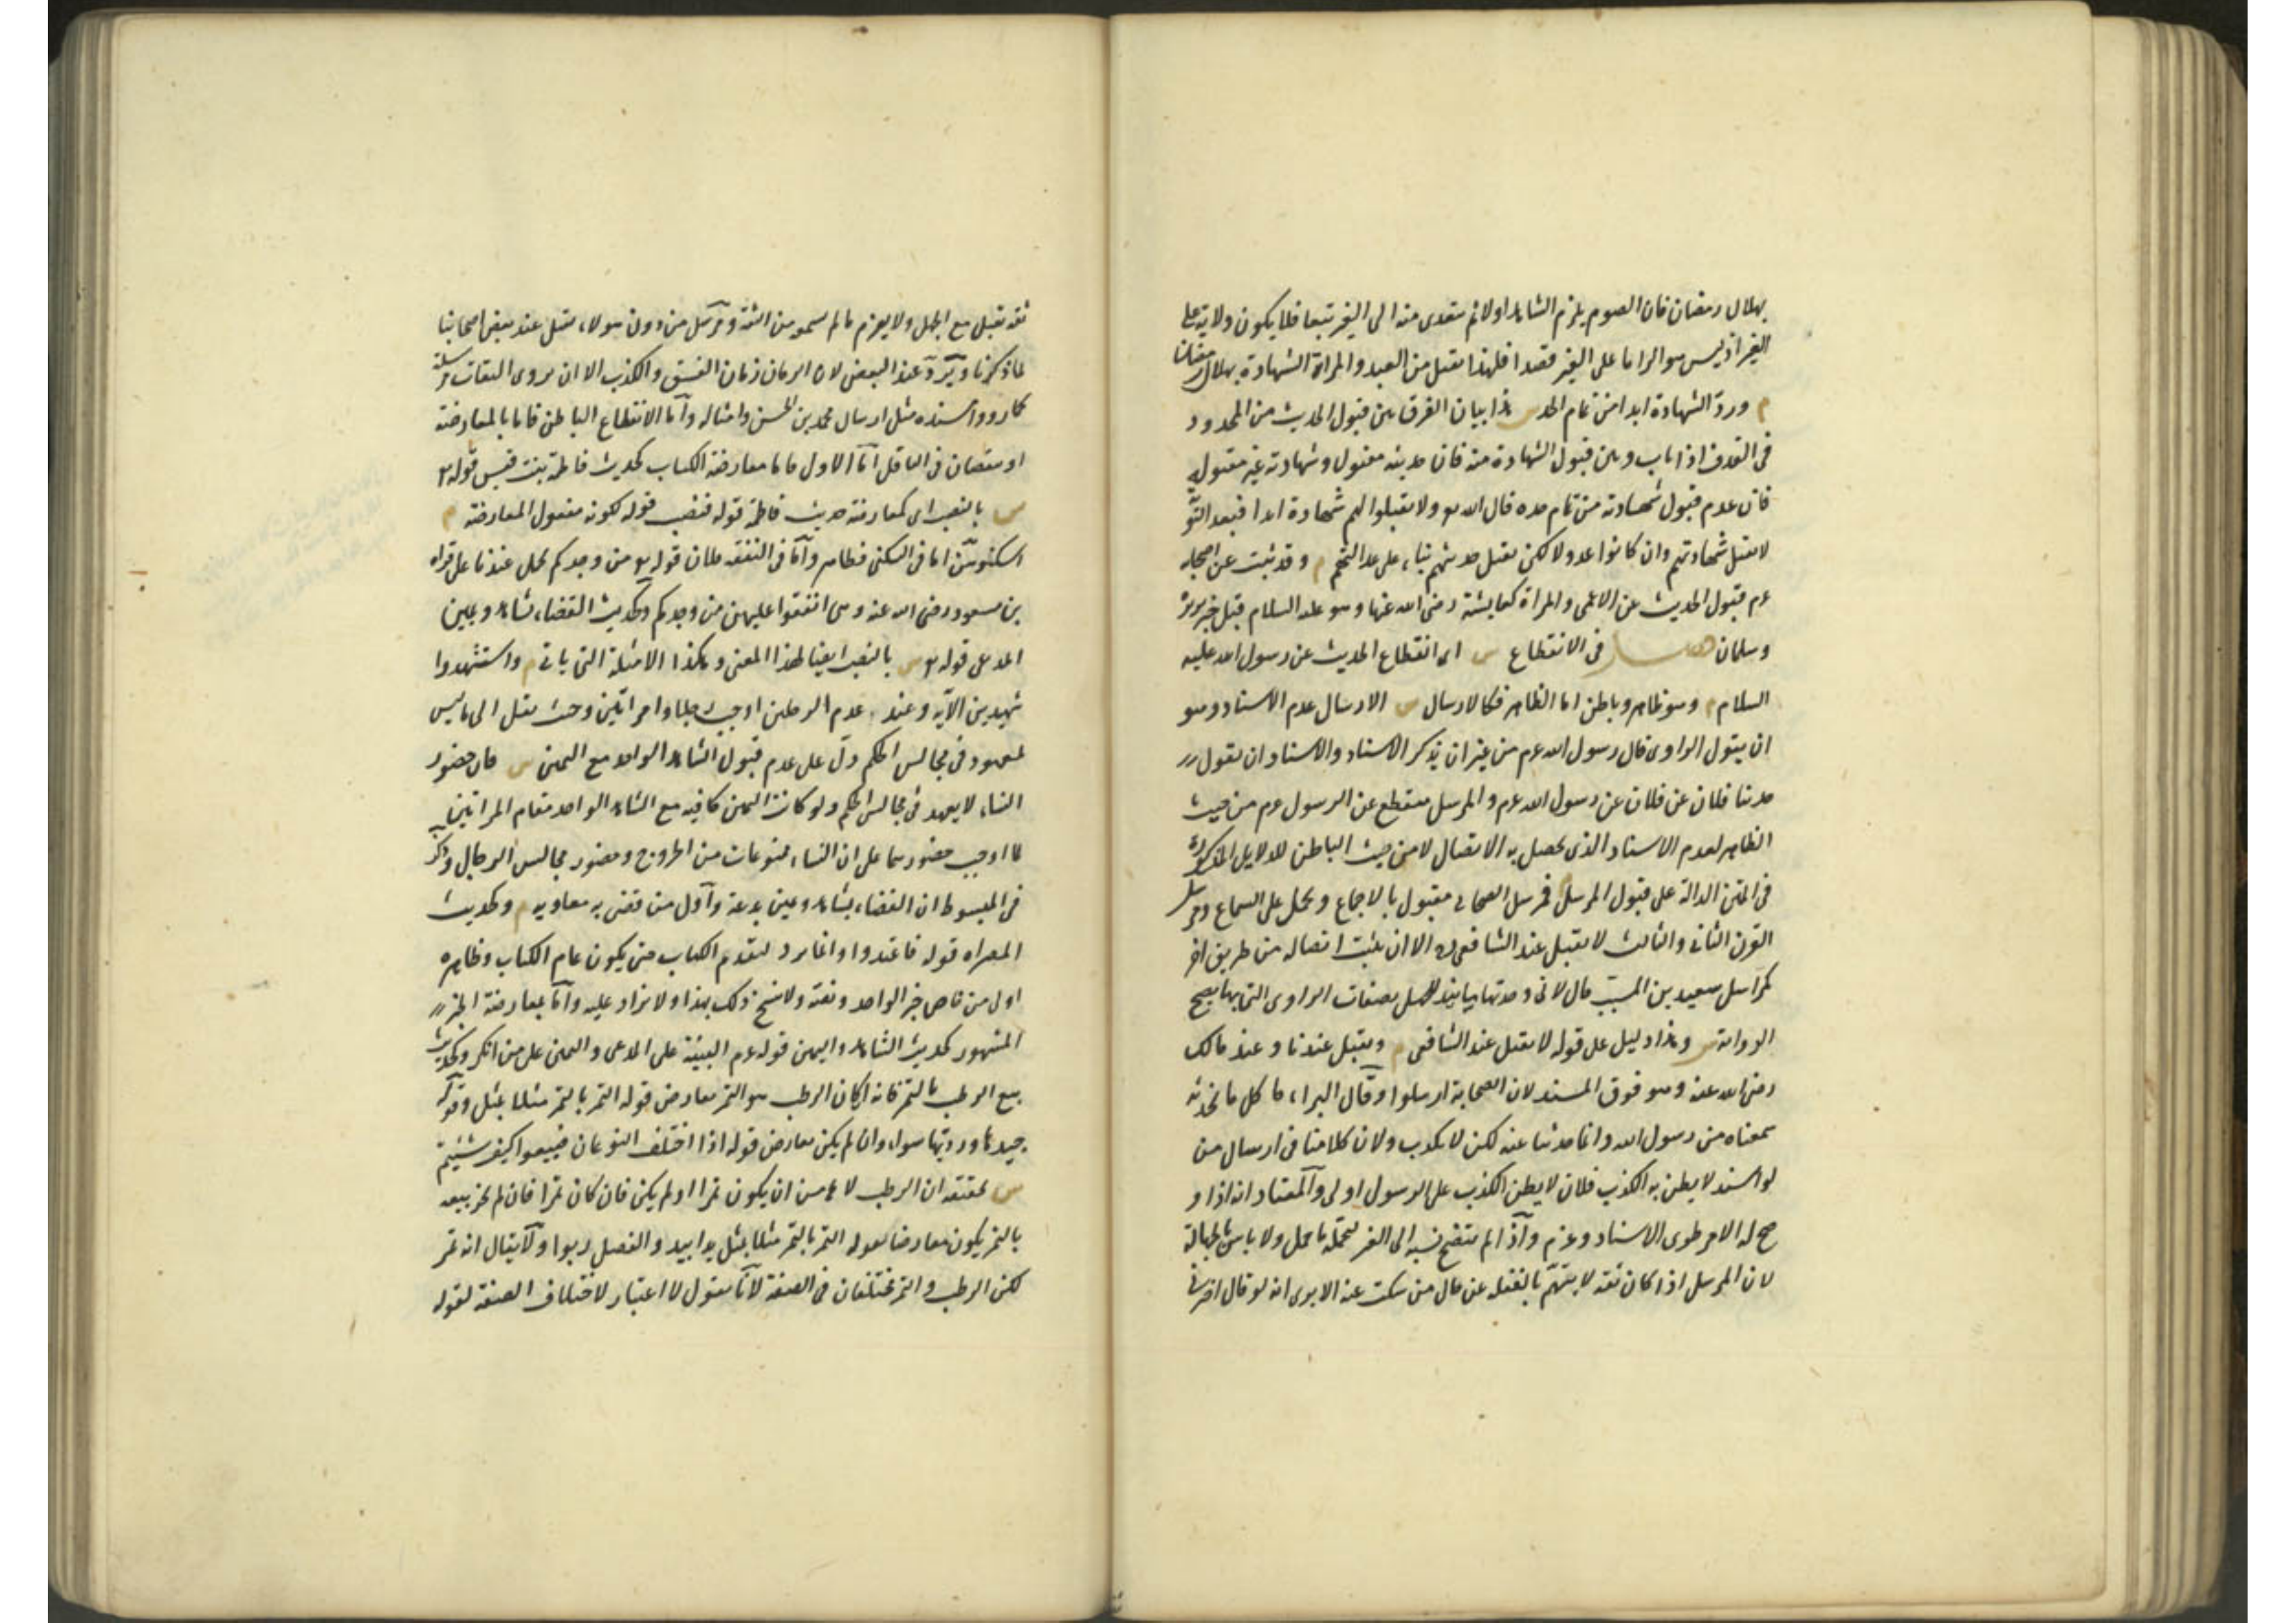 بهلال رمضان فان الصوم يلزم الشاهد اولا ثم يتعدى منه الى الغير تبعا فلا يكون ولاية على
الغير اذ ليس هو الزاما على الغير قصدا فلهذا يقبل من العبد والمراة الشهادة بهلال رمضان
م ورد الشهادة ابدا من تمام الحد س هذا بيان الفرق بين قبول الحديث من المحدود
فى القذف اذا تاب وبين قبول الشهادة منه فان حديثه مقبول وشهادته غير مقبولة
فان عدم قبول شهادته من تمام حده قال الله تع ولا تقبلوا لهم شهادة ابدا فبعد التو
لا يقبل شهادتهم وان كانوا عدولا لكن يقبل حديثهم بناء على عدالتهم م وقد ثبت عن اصحابه
عم قبول الحديث عن الاعمى والمراة كعايشة رضى الله عنها وهو عليه السلام قبل خبر بريرة
وسلمان فصـــل فى الانقطاع س اى انقطاع الحديث عن رسول الله عليه
السلام م وهو ظاهر وباطن اما الظاهر فكالارسال س الارسال عدم الاسناد وهو
ان يقول الراوى قال رسول الله عم من غير ان يذكر الاسناد والاسناد ان يقول
حدثنا فلان عن فلان عن رسول الله عم والمرسل منقطع عن الرسول عم من حيث
الظاهر لعدم الاسناد الذى يحصل به الاتصال لا من حيث الباطن للدلايل المذكورة
فى المتن الدالة على قبول المرسل فمرسل الصحابى مقبول بالاجماع ويحمل على السماع ومرسل
القرن الثانى والثالث لا يقبل عند الشافعى ره الا ان يثبت اتصاله من طريق اخر
كمراسل سعيد بن المسيب قال لانى وجدتها مسانيد للجهل بصفات الراوى التى بها يصح
الرواية س وهذا دليل على قوله لا يقبل عند الشافعى م ويقبل عندنا وعند مالك
رضى الله عنه وهو فوق المسند لان الصحابة ارسلوا وقال البراء ما كل ما نحدثه
سمعناه من رسول الله وانما حدثنا عنه لكن لا نكذب ولان كلامنا فى ارسال من
لو اسند لا يظن به الكذب فلان لا يظن الكذب على الرسول اولى والمعتاد انه اذا و
ضح له الامر طوى الاسناد وجزم واذا لم يتضح نسبه الى الغير ليحمله ما حمل ولا باس بالجهالة
لان المرسل اذا كان ثقة لا يتهم بالغفلة عن حال من سكت عنه الا يرى انه لو قال اخبرنى
ثقة يقبل مع الجهل ولا يجزم ما لم يسمعه من الثقة ومرسل من دون هولاء يقبل عند بعض اصحابنا
لما ذكرنا ويرد عند البعض لان الزمان زمان الفسق والكذب الا ان يروى الثقات مرسله
كما رووا مسنده مثل ارسال محمد بن الحسن وامثاله واما الانقطاع الباطن فاما بالمعارضة
او بنقصان فى الناقل اما الاول فاما معارضة الكتاب كحديث فاطمة بنت قيس قوله تع
س بالنصب اى كمعارضة حديث فاطمة قوله فنصب قوله لكونه مفعول المعارضة م
اسكنوهن اما فى السكنى فظاهر واما فى النفقة فلان قوله تع من وجدكم يحمل عندنا على قراءة
بن مسعود رضى الله عنه وهى انفقوا عليهن من وجدكم وكحديث القضاء بشاهد ويمين
المدعى قوله تع س بالنصب ايضا لهذا المعنى وهكذا الامثلة التى ياتى م واستشهدوا
شهيدين الآية وعند عدم الرجلين اوجب رجلا وامراتين وحيث نقل الى ما ليس
لمعهود فى مجالس الحكم دل على عدم قبول الشاهد الواحد مع اليمين س فان حضور
النساء لا يعهد فى مجالس الحكم ولو كانت اليمين كافية مع الشاهد الواحد مقام المراتين
لما اوجب حضورهما على ان النساء ممنوعات من الخروج وحضور مجالس الرجال وذكر
فى المبسوط ان القضاء بشاهد ويمين بدعة واول من قضى به معاوية م وكحديث
المصراة قوله فاعتدوا وانما يرد لتقدم الكتاب حتى يكون عام الكتاب وظاهره
اولى من خاص خبر الواحد ونصه ولا ينسخ ذلك بهذا ولا يزاد عليه واما بمعارضة الخبر
المشهور كحديث الشاهد واليمين قوله عم البينة على المدعى واليمين على من انكر وكحديث
بيع الرطب بالتمر فانه ان كان الرطب هو التمر يعارض قوله التمر بالتمر مثلا بمثل وقوله
جيدها ورديها سواء وان لم يكن يعارض قوله اذا اختلف النوعان فبيعوا كيف شئتم
س تحقيقه ان الرطب لا يخ من ان يكون تمرا او لم يكن فان كان تمرا فان لم يجز بيعه
بالتمر يكون معارضا لقوله التمر بالتمر مثلا بمثل يدا بيد والفضل ربوا ولا يقال انه تمر
لكن الرطب والتمر مختلفان فى الصفة لانا نقول لا اعتبار لاختلاف الصفة لقوله